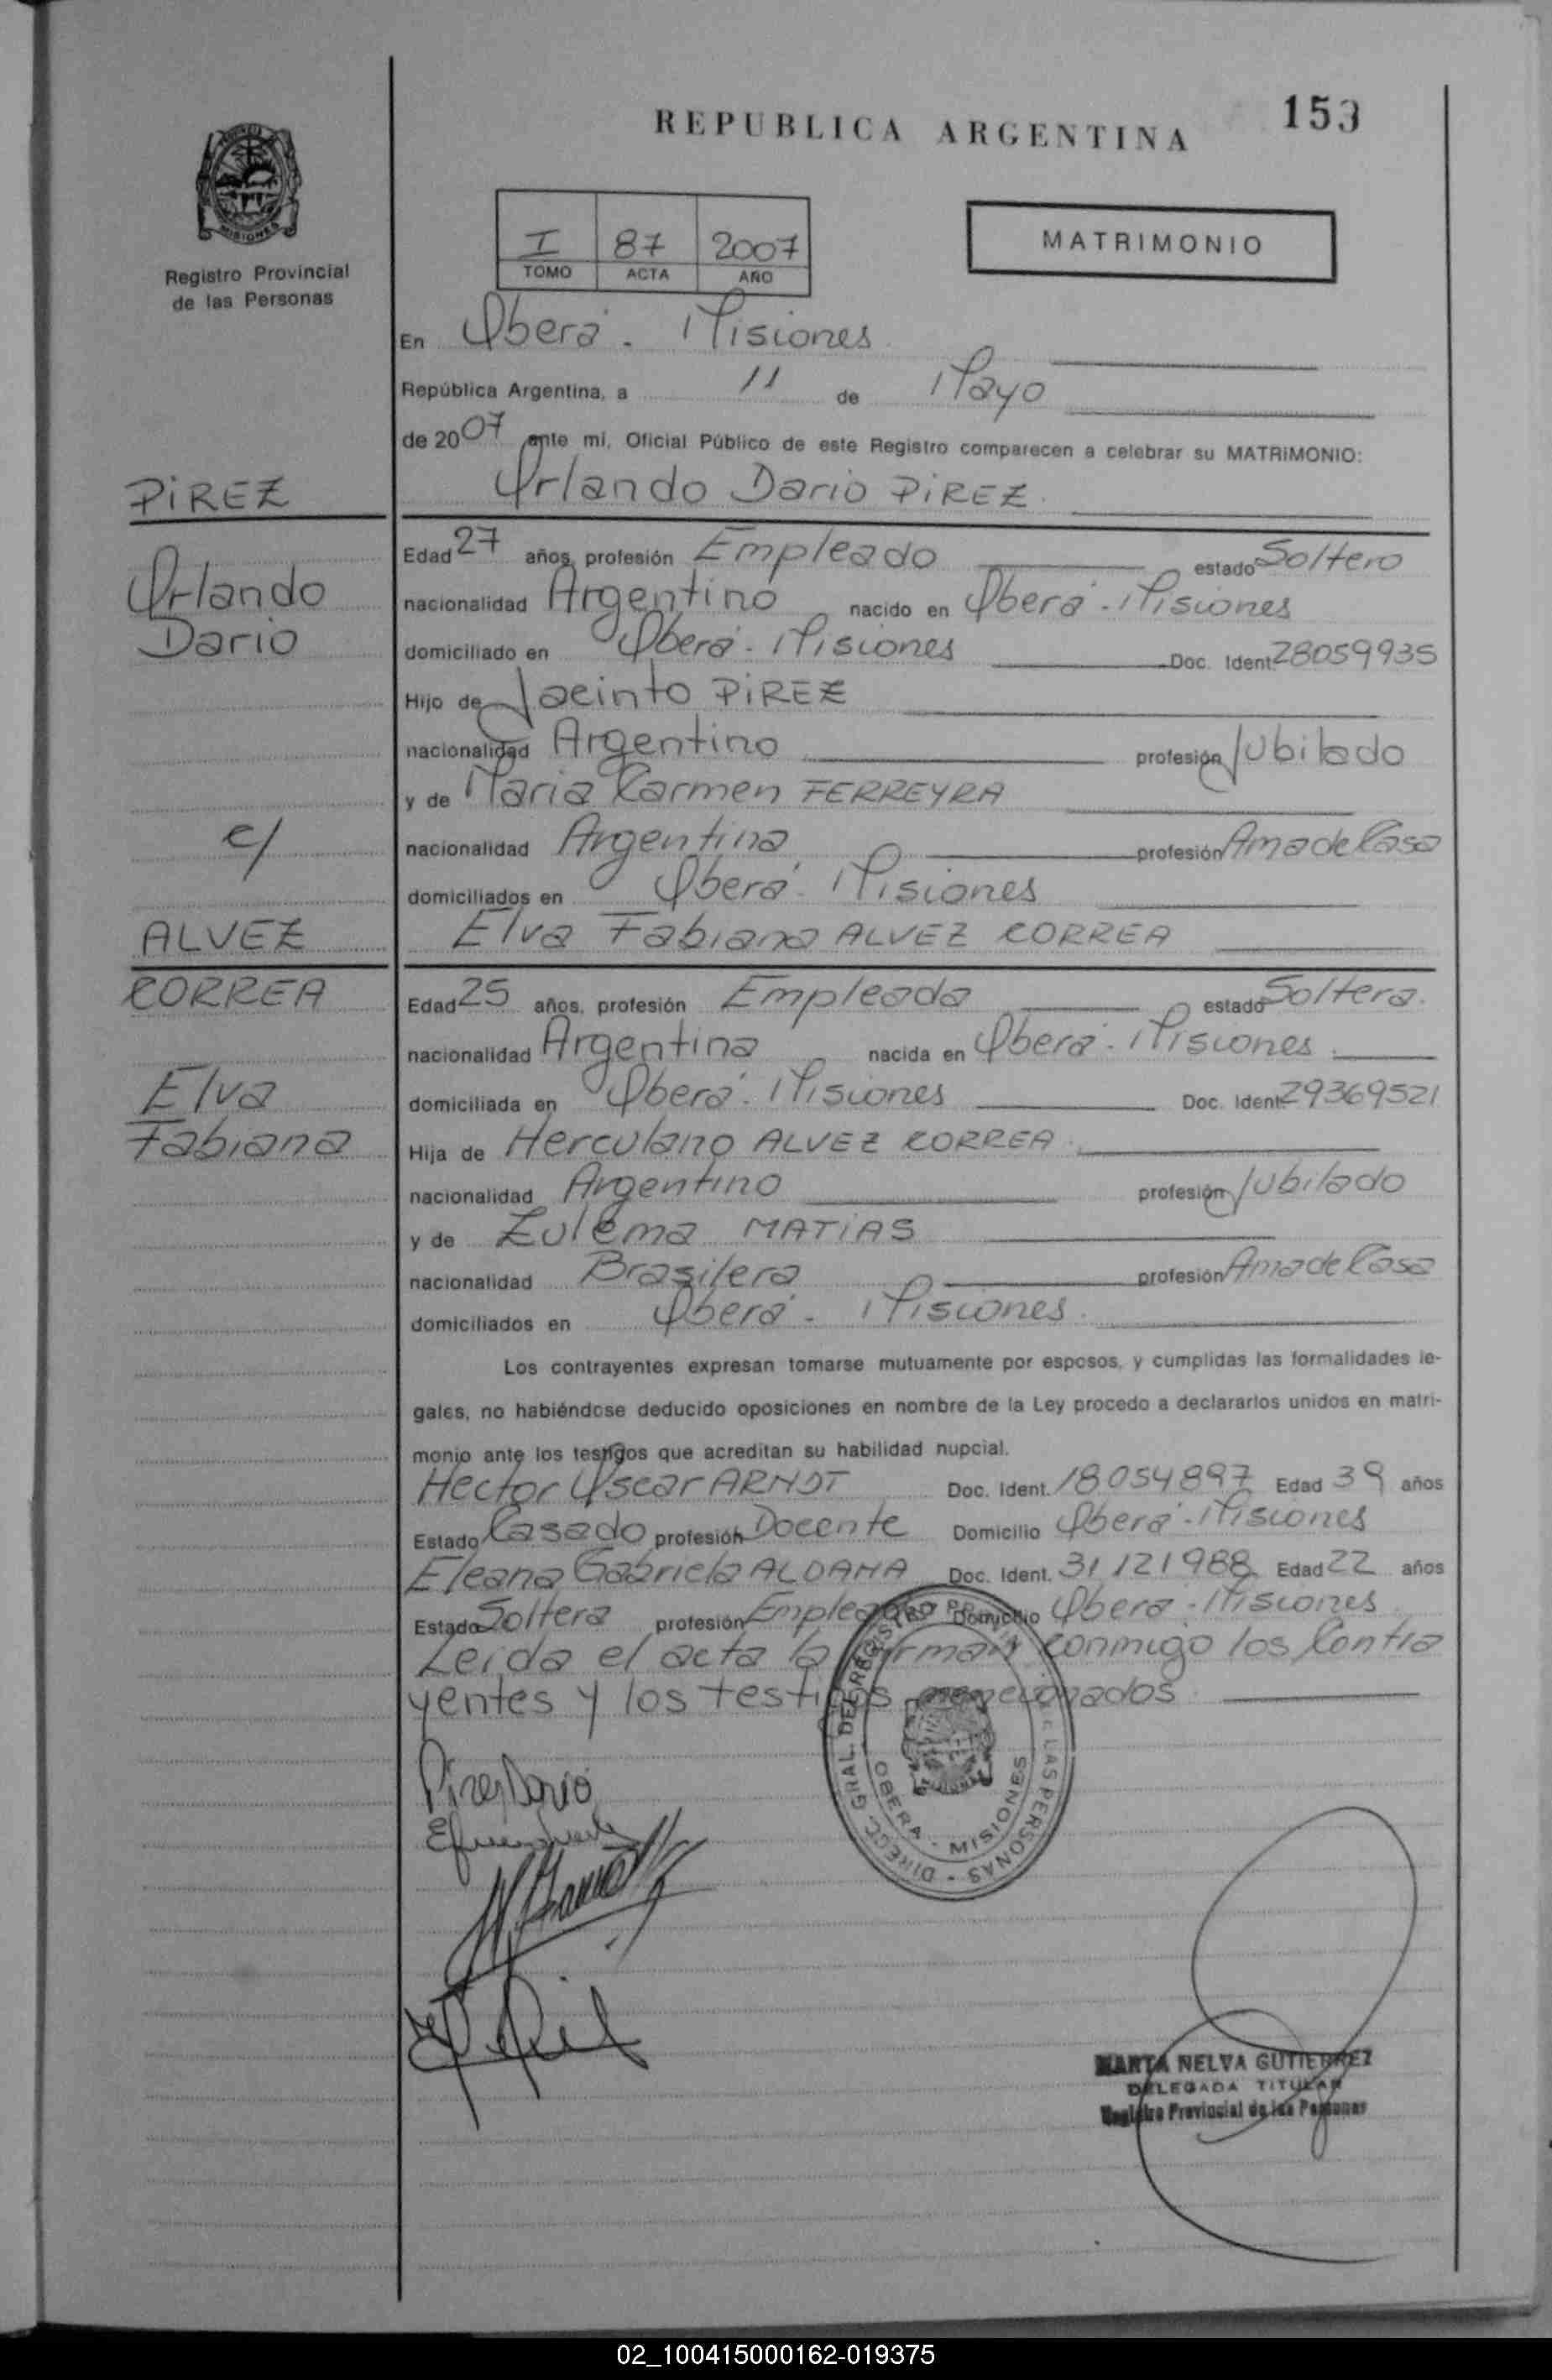 REPUBLICA ARGENTINA
153
MISIONES
Registro Provincial
de las Personas
I 87 2007
TOMO ACTA AÑO
MATRIMONIO
En Oberá - Misiones
República Argentina, a 11 de Mayo
de 2007 ante mi, Oficial Público de este Registro comparecen a celebrar su MATRIMONIO:
PiREZ
Orlando Dario PiREZ
Edad 27 años, profesión Empleado estado Soltero
Orlando
nacionalidad Argentino nacido en Oberá - Misiones
Dario
domiciliado en Oberá - Misiones Doc. Ident 28059935
Hijo de Jacinto PiREZ
nacionalidad Argentino profesión Jubilado
y de Maria Carmen FERREYRA
c/
nacionalidad Argentina profesión Ama de Casa
domiciliados en Oberá - Misiones
ALVEZ
Elva Fabiana ALVEZ CORREA
CORREA
Edad 25 años, profesión Empleada estado Soltera.
nacionalidad Argentina nacida en Oberá - Misiones
Elva
domiciliada en Oberá - Misiones Doc. Ident. 29369521
Fabiana
Hija de Herculano ALVEZ CORREA
nacionalidad Argentino profesión Jubilado
y de Zulema MATiAS
nacionalidad Brasilera profesión Ama de Casa
domiciliados en Oberá - Misiones
Los contrayentes expresan tomarse mutuamente por esposos, y cumplidas las formalidades le-
gales, no habiéndose deducido oposiciones en nombre de la Ley procedo a declararlos unidos en matri-
monio ante los testigos que acreditan su habilidad nupcial.
Hector Oscar ARNDT Doc. Ident. 18.054897 Edad 39 años
Estado Casado profesión Docente Domicilio Oberá - Misiones
Eleana Gabriela ALDANA Doc. Ident. 31121988 Edad 22 años
Estado Soltera profesión Empleada Domicilio Oberá - Misiones
Leida el acta la firman conmigo los Contra
yentes y los testigos mencionados
DIRECC. GRAL. DEL REGISTRO PROVINCIAL DE LAS PERSONAS
OBERA - MISIONES
Pirez Dario
MARTA NELVA GUTIERREZ
DELEGADA TITULAR
Registro Provincial de las Personas
02_100415000162-019375